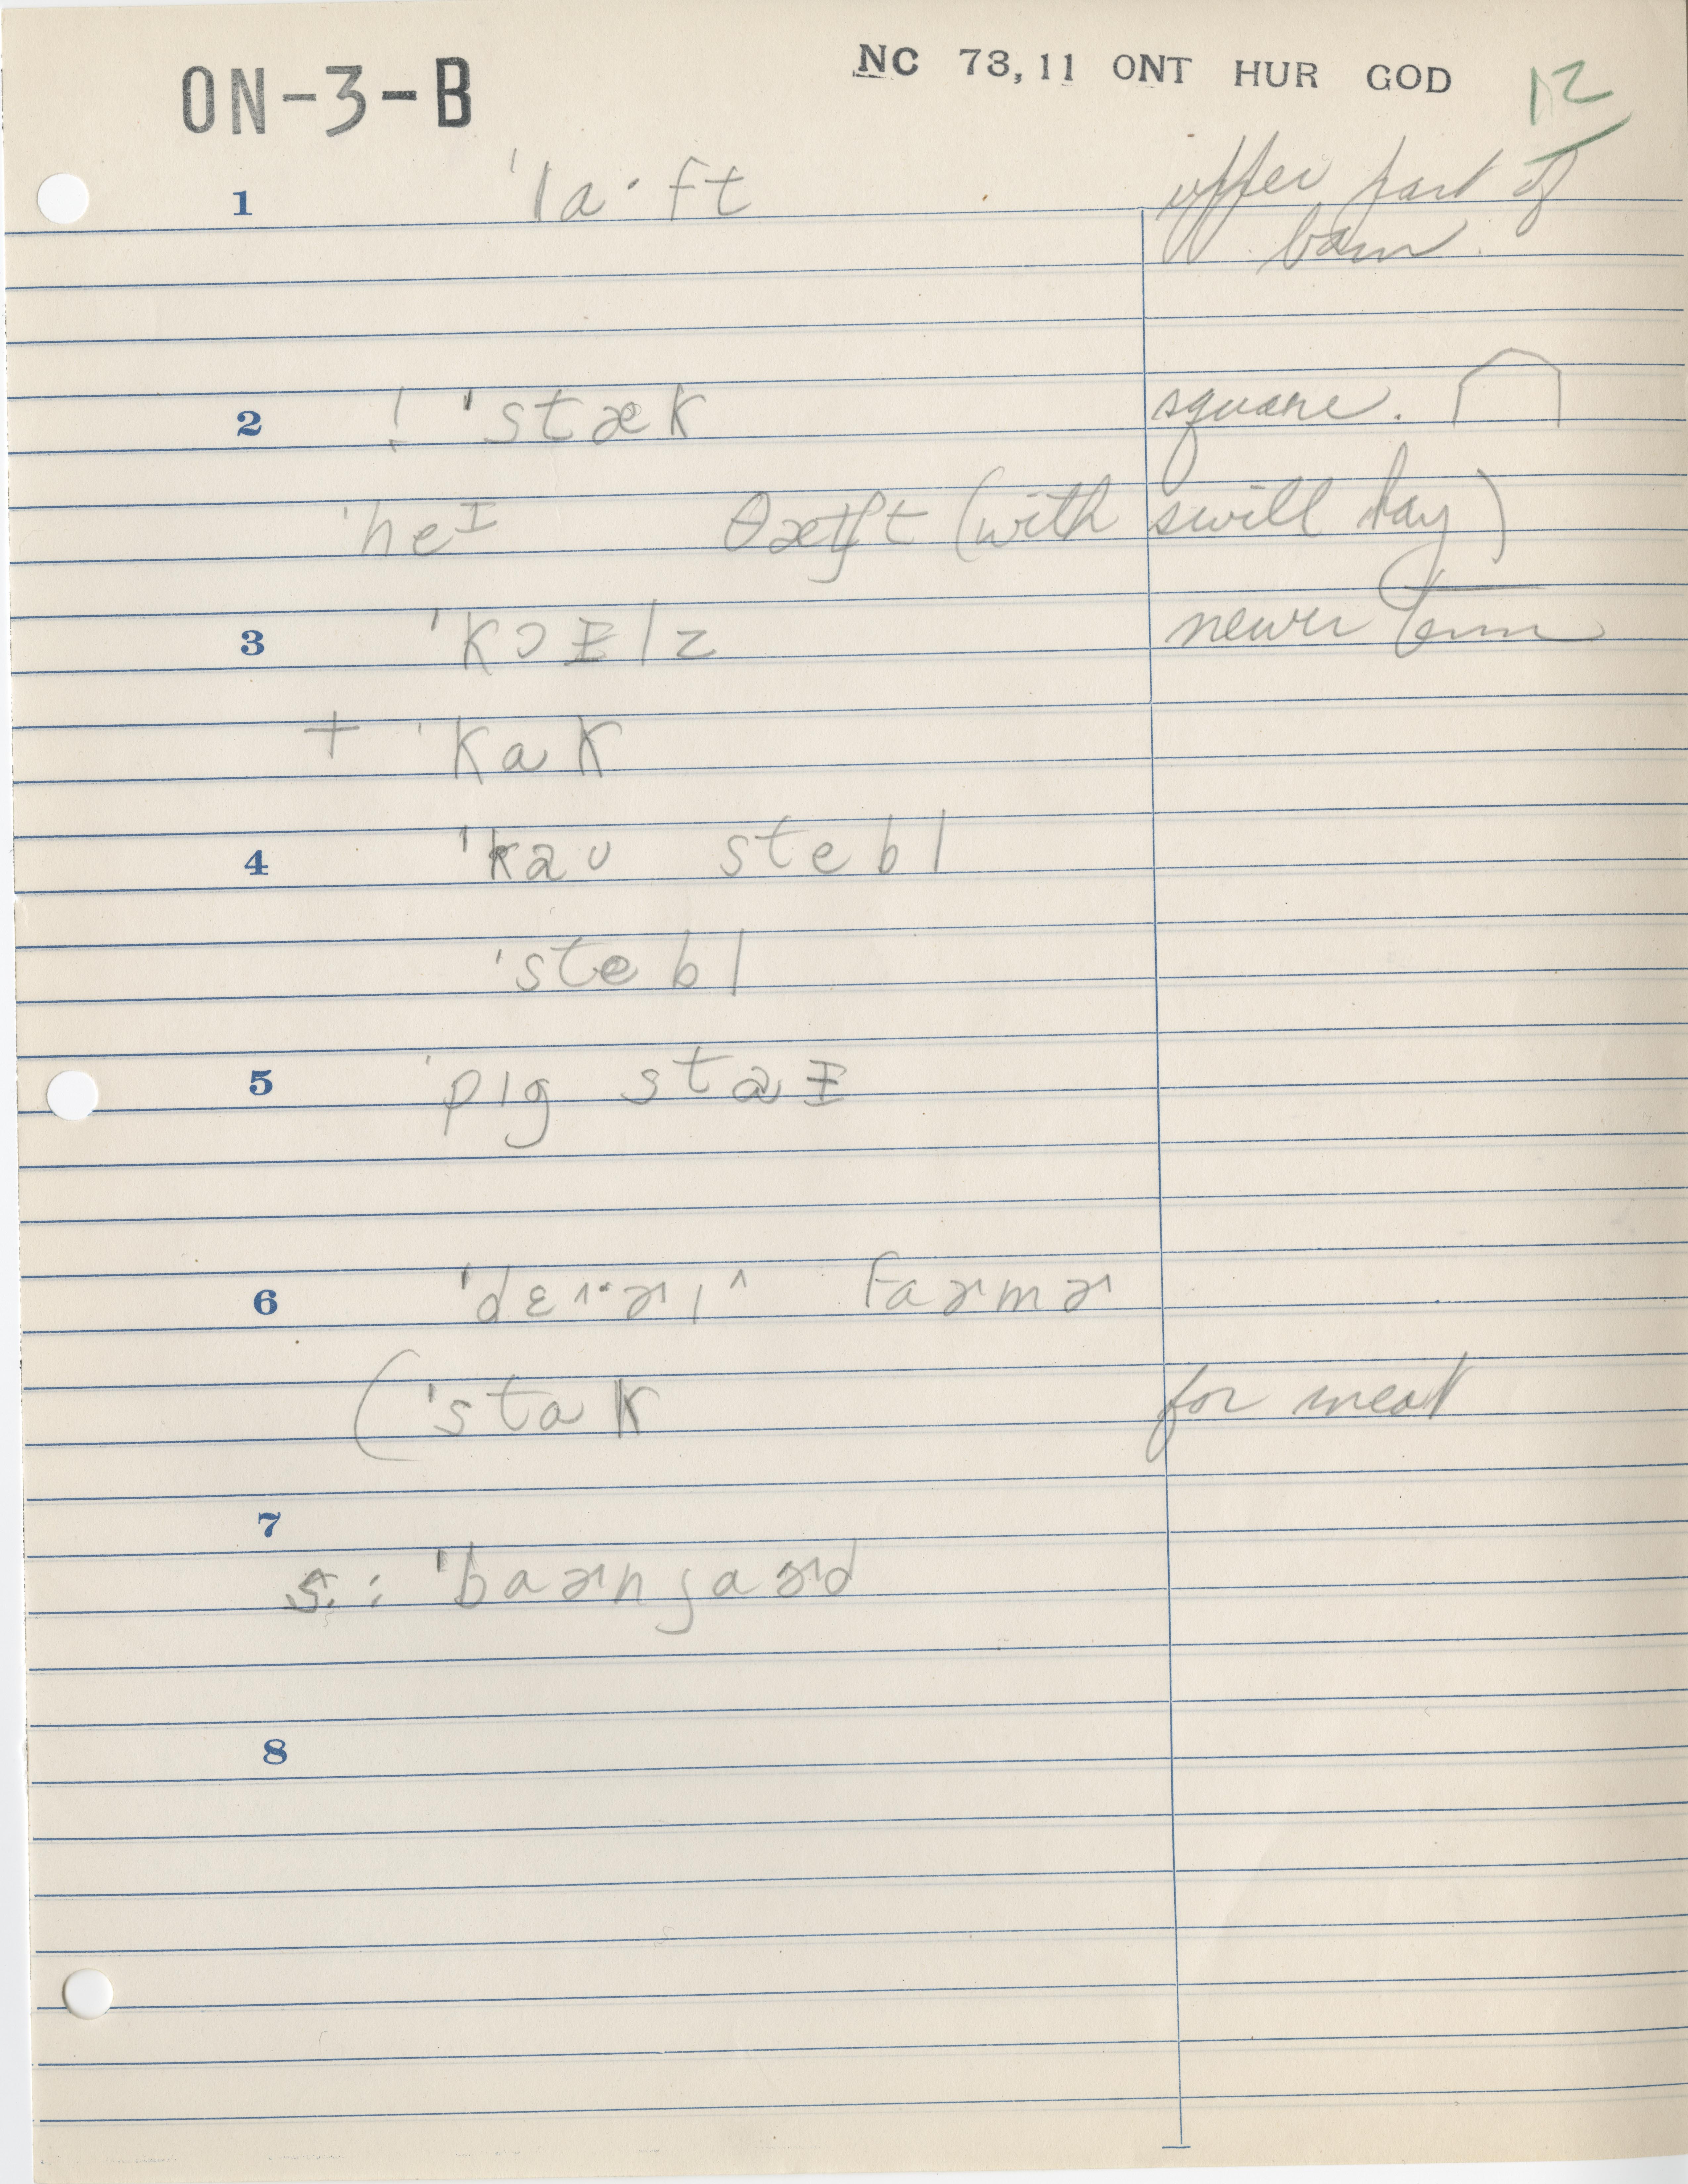 ON-3-B NC 73,11 ONT HUR GOD 12
1 ˈla·ft upper part of
barn.
2 ! ˈstæk square.
ˈheᴵ θætʃt (with swill hay)
3 ˈkɔɪlz newer term
+ ˈkak
4 ˈkaʊ stebl
ˈstebl
5 ˈpɪg staɪ
6 farmɚ
( ˈstak for meat
7
s. : ˈbaɚnjaɚd
8